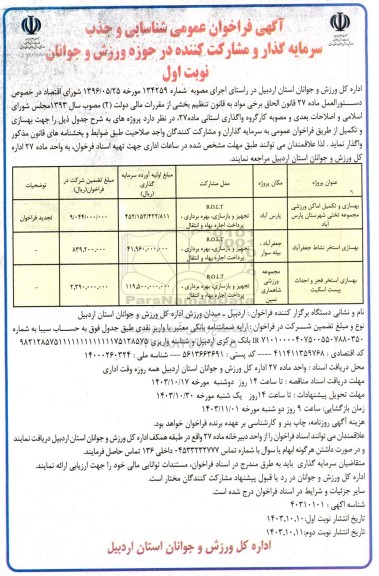 آگهی فراخوان عمومی شناسایی و جذب
سرمایه گذار و مشارکت کننده در حوزه ورزش و جوانان
نوبت اول
اداره کل ورزش و جوانان استان اردبیل در راستای اجرای مصوبه شماره ۱۳۴۲۵۹ مورخه ۱۳۹۶/۰۵/۲۵ شورای اقتصاد در خصوص
دستورالعمل ماده ۲۷ قانون الحاق برخی مواد به قانون تنظیم بخشی از مقررات مالی دولت (۲) مصوب سال ۱۳۹۳مجلس شورای
اسلامی و اصلاحات بعدی و مصوبه کارگروه واگذاری استانی ماده۲۷، در نظر دارد پروژه های به شرح جدول ذیل را جهت بهسازی
و تکمیل از طریق فراخوان عمومی به سرمایه گذاران و مشارکت کنندگان واجد صلاحیت طبق ضوابط و بخشنامه های قانون مذکور
واگذار نماید . لذا علاقمندان می توانند طبق مهلت مشخص شده در ساعات اداری جهت تهیه اسناد فراخوان، به واحد ماده ۲۷ اداره
کل ورزش و جوانان استان اردبیل مراجعه نمایند.
عنوان پروژه | مکان پروژه | مدل مشارکت | مبلغ اولیه آورده سرمایه گذاری (ریال) | مبلغ تضمین شرکت در فراخوان(ریال) | توضیحات
بهسازی و تکمیل اماکن ورزشی مجموعه تختی شهرستان پارس آباد | پارس آباد | R.O.L.T تجهیز و بازسازی، بهره برداری، پرداخت اجاره بهاء و انتقال | ۴۵۲/۱۵۳/۴۲۲/۸۱۱ | ۹/۰۴۴/۰۰۰/۰۰۰ | تجدید فراخوان
بهسازی استخر نشاط جعفرآباد | جعفرآباد ، بیله سوار | R.O.L.T تجهیز و بازسازی، بهره برداری، پرداخت اجاره بهاء و انتقال | ۴۱,۹۶۰,۰۰۰,۰۰۰ | ۸۳۹,۲۰۰,۰۰۰ | -
بهسازی استخر فجر و احداث پیست اسکیت | مجموعه ورزشی شاهماری نمین | R.O.L.T تجهیز و بازسازی، بهره برداری، پرداخت اجاره بهاء و انتقال | ۱۱۹,۵۰۰,۰۰۰,۰۰۰ | ۲,۳۹۰,۰۰۰,۰۰۰ | -
نام و نشانی دستگاه برگزار کننده فراخوان : اردبیل ـ میدان ورزش اداره کل ورزش و جوانان استان اردبیل
نوع و مبلغ تضمین شرکت در فراخوان : ارایه ضمانتنامه بانکی معتبر یا واریز نقدی طبق جدول فوق به حساب سیبا به شماره
بانک مرکزی اردبیل و شناسه واریزی
کد اقتصادی : ۴۱۱۴۱۱۳۵۹۷۶۸ --- کد پستی : ۵۶۱۳۶۶۳۶۹۱ --- شناسه ملی : ۱۴۰۰۰۲۶۰۳۲۴
محل دریافت اسناد : واحد ماده ۲۷ اداره کل ورزش و جوانان استان اردبیل همه روزه وقت اداری
مهلت دریافت اسناد مناقصه : تا ساعت ۱۴ روز دوشنبه مورخه ۱۴۰۳/۱۰/۱۷
مهلت تحویل پیشنهادات : تا ساعت ۱۴روز یک شنبه مورخ ۱۴۰۳/۱۰/۳۰
زمان بازگشایی: ساعت ۹ روز دو شنبه مورخه ۱۴۰۳/۱۱/۰۱
هزینه آگهی روزنامه، چاپ بنر و کارشناسی بر عهده برنده فراخوان خواهد بود.
علاقمندان می توانند اسناد فراخوان را از واحد دبیرخانه ماده ۲۷ واقع در طبقه همکف اداره کل ورزش و جوانان استان اردبیل دریافت نمایند
و در صورت داشتن هرگونه ابهام یا سوال با شماره تماس ۰۴۵۳۳۲۳۲۷۷۷ داخلی ۱۳۶ تماس حاصل فرمایند.
متقاضیان سرمایه گذاری باید به طرق مندرج در اسناد فراخوان، مستندات توانایی مالی خود را جهت ارزیابی ارائه نمایند.
اداره کل ورزش و جوانان در رد یا قبول پیشنهاد مشارکت کنندگان مختار است.
سایر جزئیات و شرایط در اسناد فراخوان درج شده است.
شناسه آگهی : ۴۰۳۱۰۱۰۱
تاریخ انتشار نوبت اول:۱۴۰۳,۱۰,۱۰
تاریخ انتشار نوبت دوم:۱۴۰۳,۱۰,۱۱
اداره کل ورزش و جوانان استان اردبیل